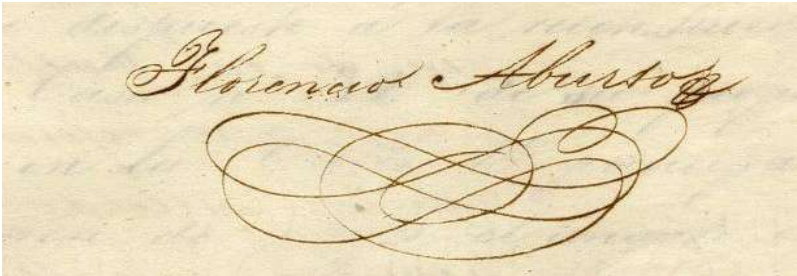 Florencio Aburto